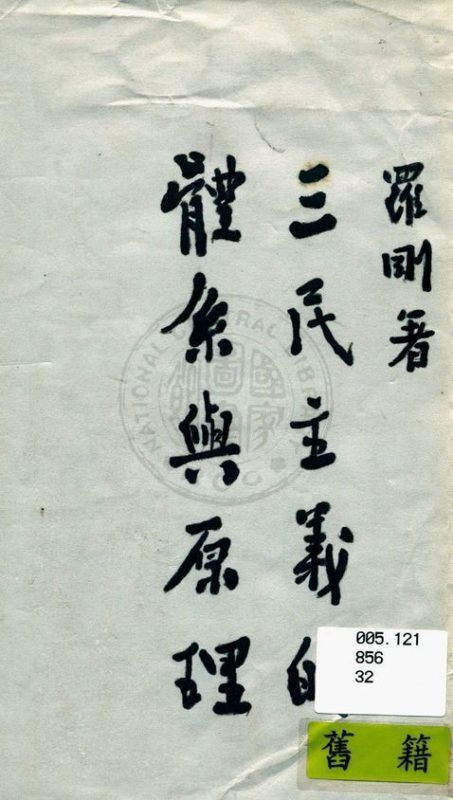 羅剛著
三民主義的
體系與原理
NATIONAL CENTRAL LIBRARY
國家圖書館
005.121
856
32
舊籍